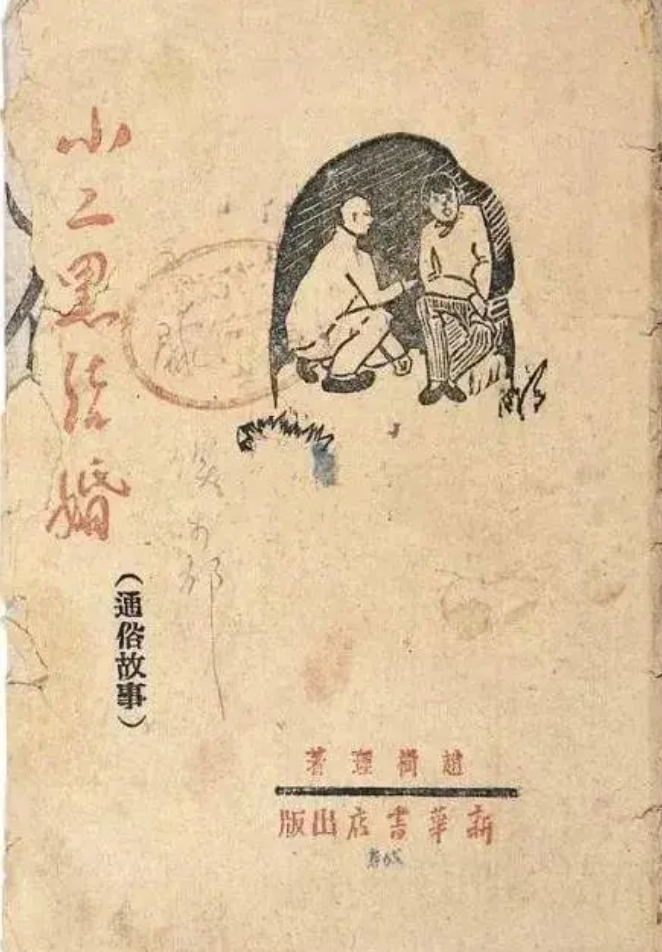 小二黑结婚
（通俗故事）
趙樹理著
新華書店出版